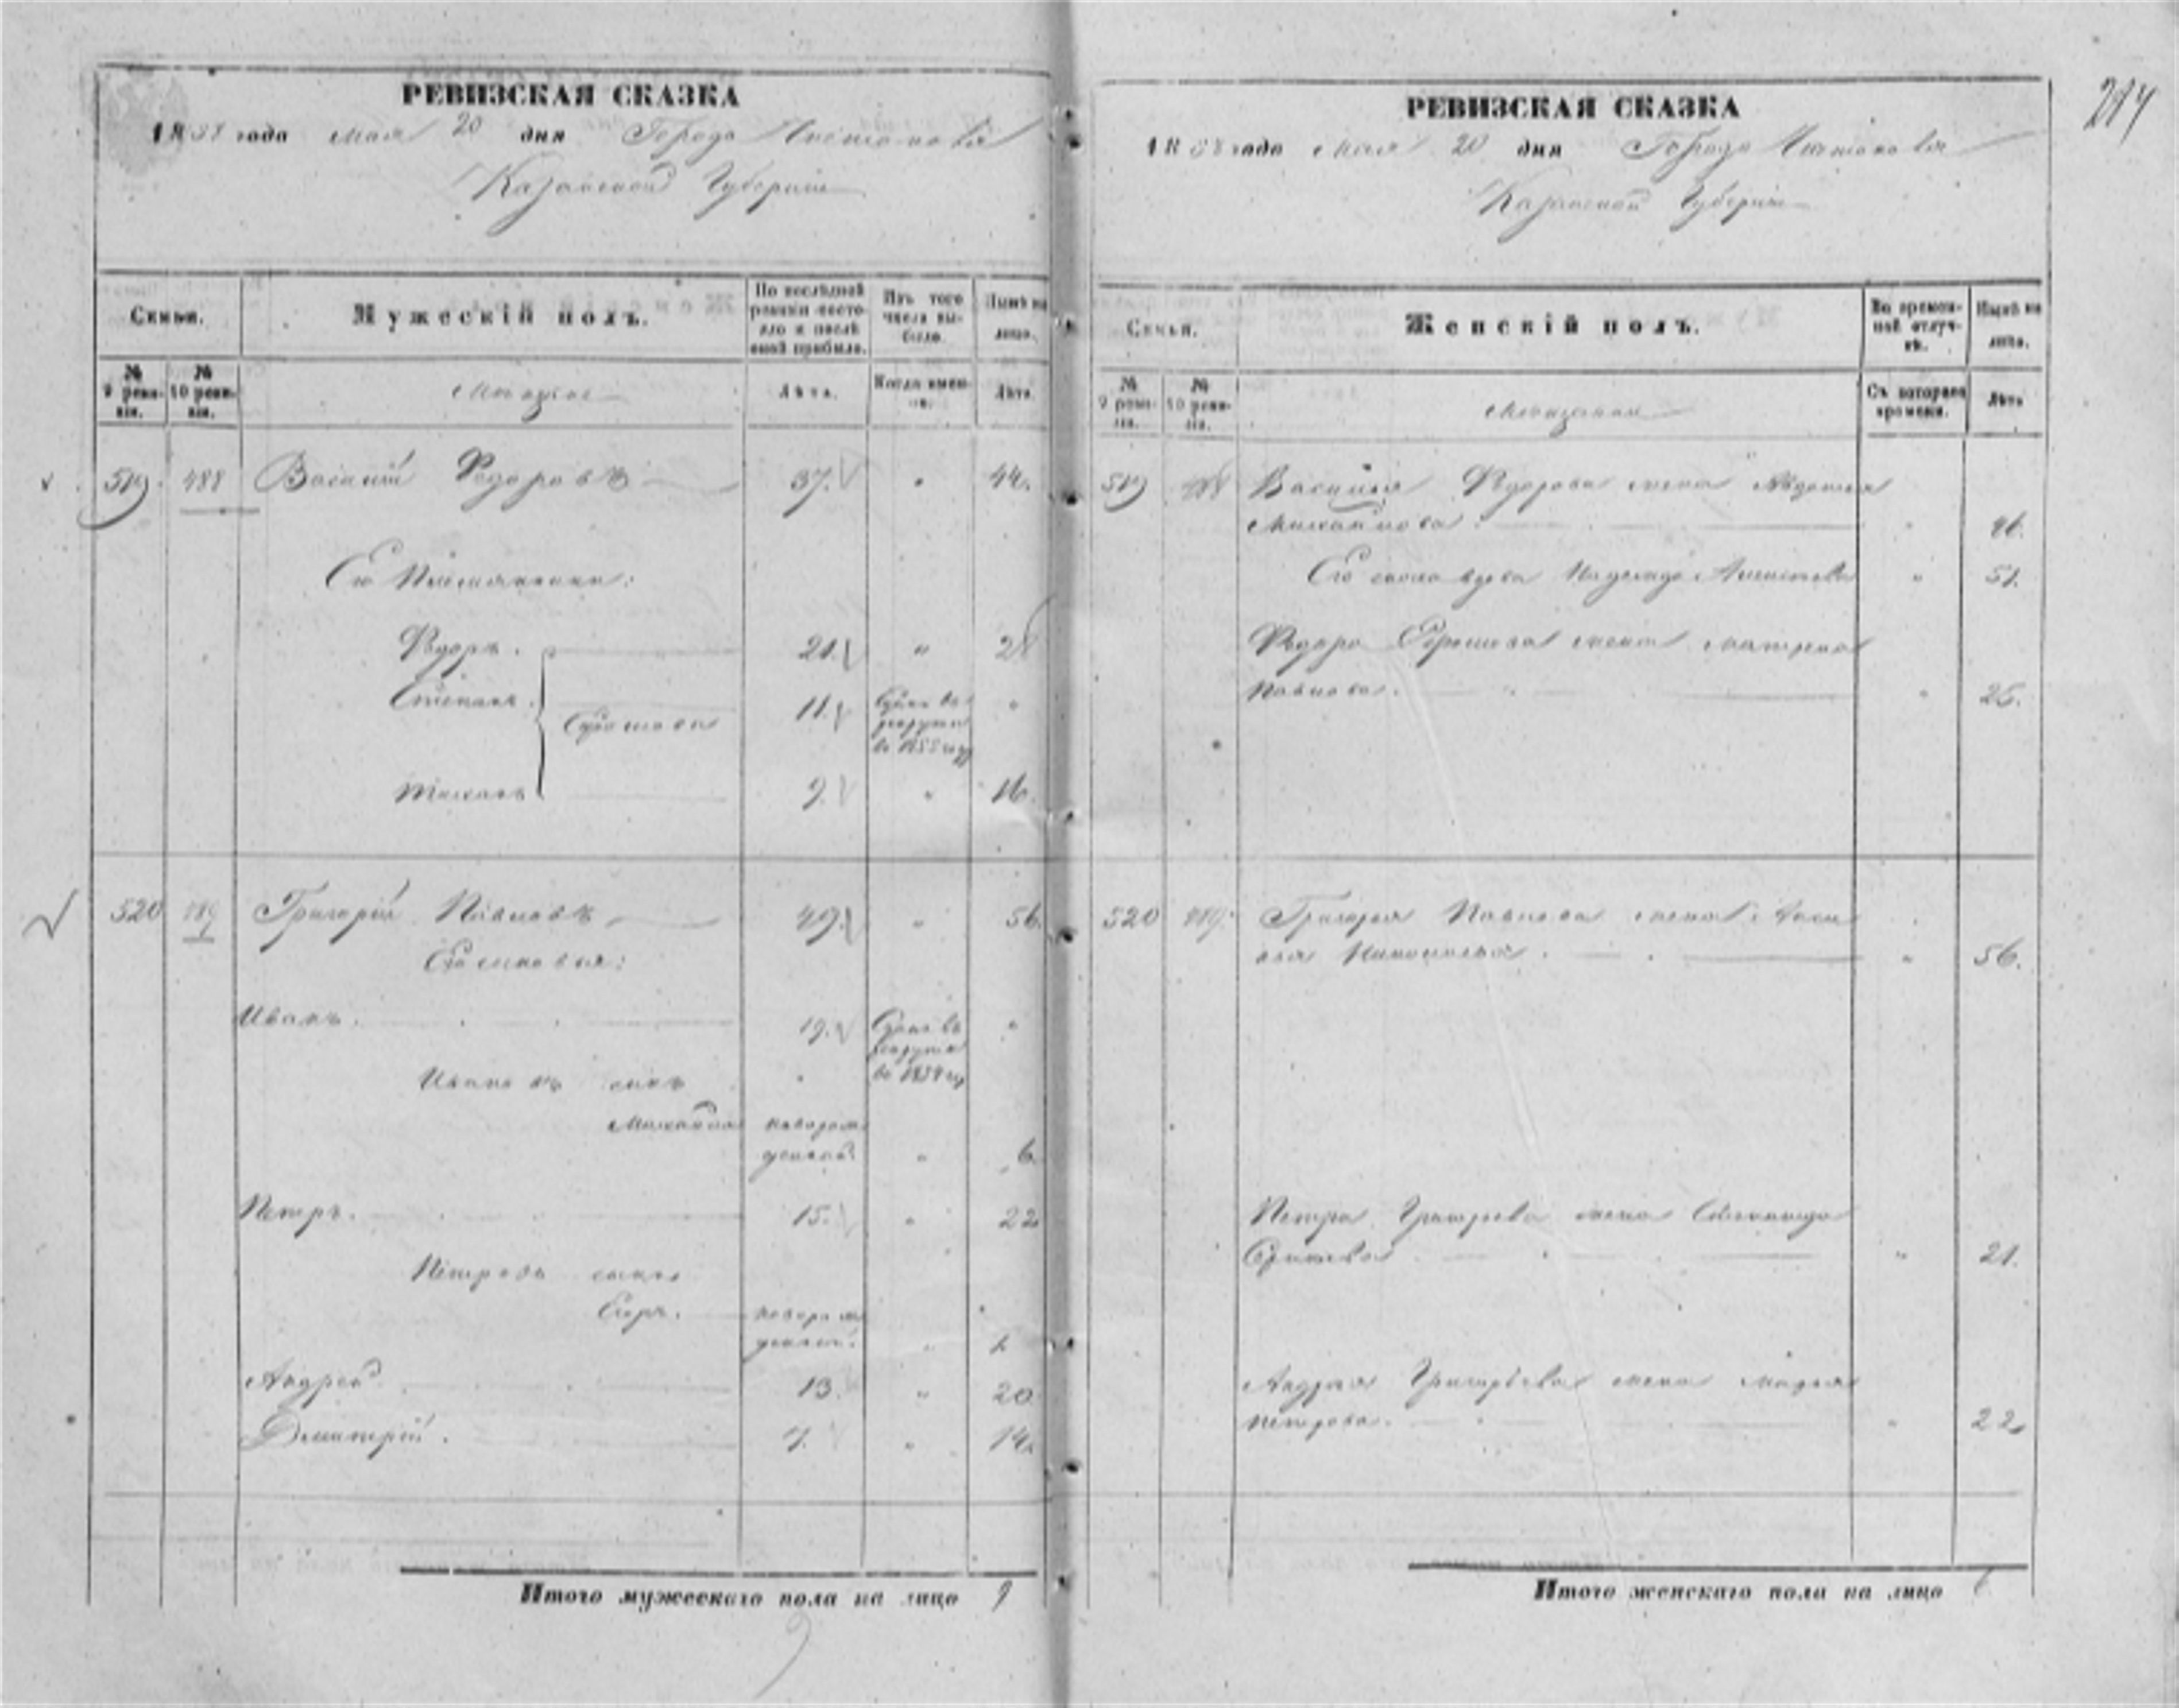 РЕВИЗСКАЯ СКАЗКА
1858 года мая 20 дня Города Чистополя
Казанской Губернiи
Семьи.
Мужескiй полъ.
По послѣдней ревизiи состояло и послѣ оной прибыло.
Изъ того числа выбыло.
Нынѣ на лицо.
№ 9 ревизiи.
№ 10 ревизiи.
Лѣта.
Когда именно.
Лѣта.
519. 488 Василiй Федоровъ 37. " 44.
Его Племянники:
Федоръ. 21. " 28
Степанъ. 11. Сданъ въ рекруты въ 1855 году "
Ефимовы
9. " 16.
520 489 Григорiй Павловъ 49. " 56.
Его сыновья:
Иванъ. 19. Сданъ въ рекруты въ 1854 г. "
Ивановъ сынъ
Михайло новорожденный. " 6.
Петръ. 15. " 22
Петровъ сынъ
Егоръ. новорожденный. " 1.
Андрей 13. " 20
Дмитрiй. 7. " 14.
Итого мужескаго пола на лицо 9
9
РЕВИЗСКАЯ СКАЗКА
214
1858 года мая 20 дня Города Чистополя
Казанской Губернiи
Семьи.
Женскiй полъ.
Во временной отлучкѣ.
Нынѣ на лицо.
№ 9 ревизiи.
№ 10 ревизiи.
Съ котораго времени.
Лѣта
519 488 Василья Федорова жена Авдотья
Михайлова. " 41.
вдова Надежда " 51.
Федора жена Матрена
Павлова. " 25.
520 489. Григорья Павлова жена
" 56.
Петра Григорьева жена
" 21.
Андрея Григорьева жена Марья
Петрова. " 22.
Итого женскаго пола на лицо 6